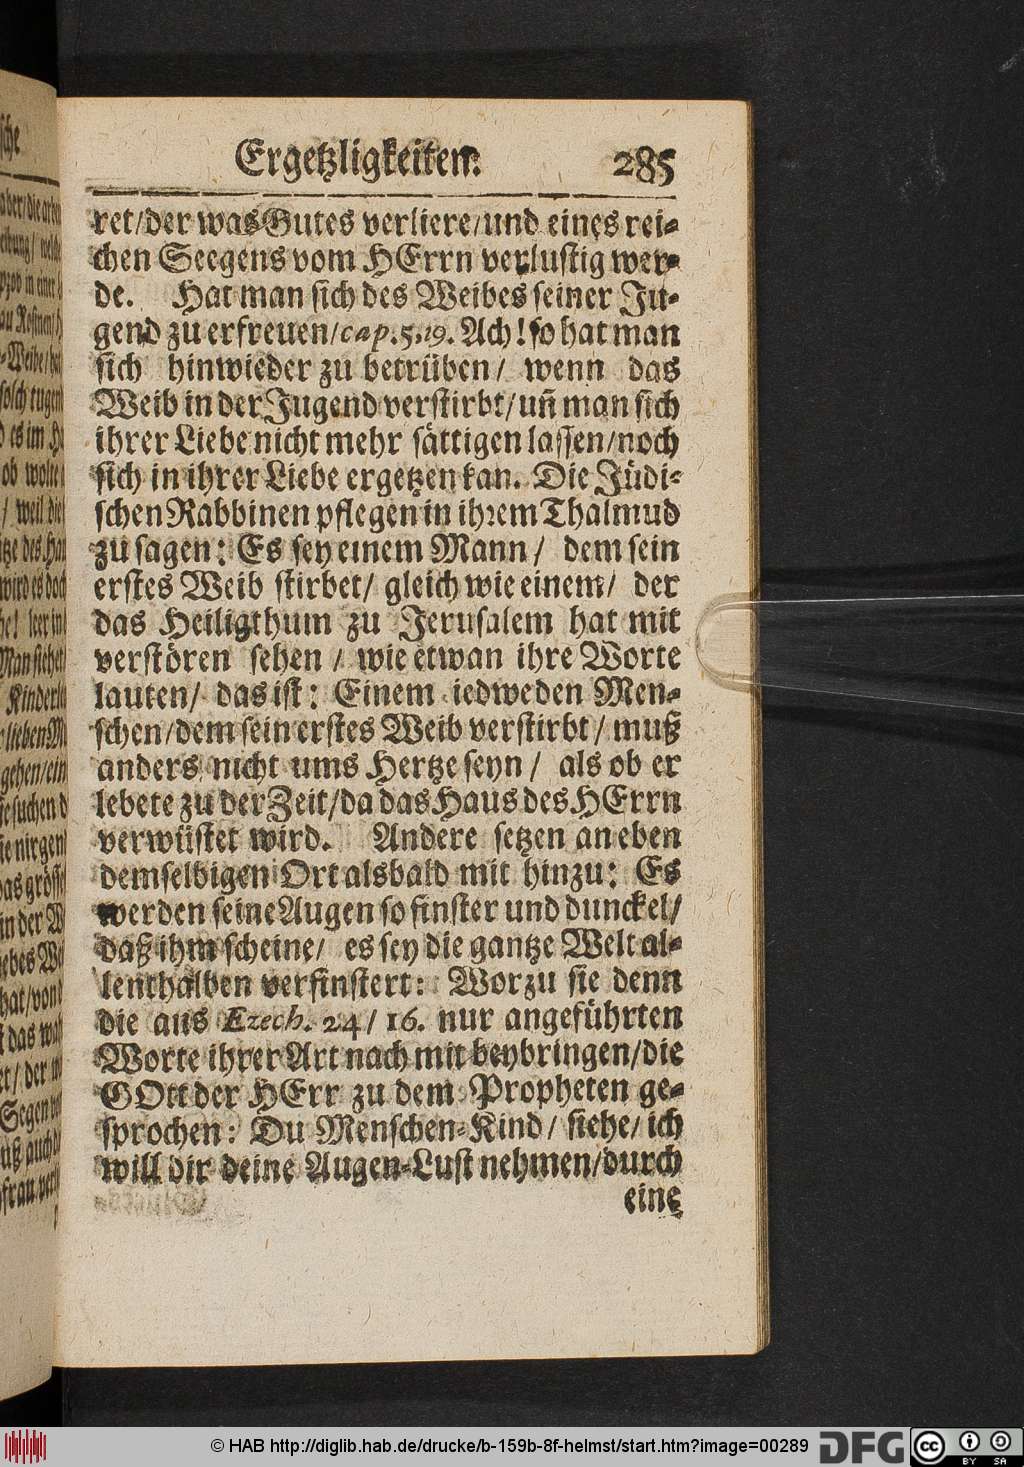 Ergetzligkeiten. 285
ret/der was Gutes verliere/und eines rei-
chen Seegens vom HErrn verlustig wer-
de. Hat man sich des Weibes seiner Ju-
gend zu erfreuen/cap.5,19. Ach! so hat man
sich hinwieder zu betrüben/ wenn das
Weib in der Jugend verstirbt/uñ man sich
ihrer Liebe nicht mehr sättigen lassen/noch
sich in ihrer Liebe ergetzen kan. Die Jüdi-
schen Rabbinen pflegen in ihrem Thalmud
zu sagen: Es sey einem Mann/ dem sein
erstes Weib stirbet/ gleich wie einem/ der
das Heiligthum zu Jerusalem hat mit
verstören sehen/ wie etwan ihre Worte
lauten/ das ist: Einem iedweden Men-
schen/dem sein erstes Weib verstirbt/ muß
anders nicht ums Hertze seyn/ als ob er
lebete zu der Zeit/da das Haus des HErrn
verwüstet wird. Andere setzen an eben
demselbigen Ort alsbald mit hinzu: Es
werden seine Augen so finster und dunckel/
daß ihm scheine/ es sey die gantze Welt al-
lenthalben verfinstert: Worzu sie denn
die aus Ezech. 24/16. nur angeführten
Worte ihrer Art nach mit beybringen/die
GOtt der HErr zu dem Propheten ge-
sprochen: Du Menschen-Kind/ siehe/ich
will dir deine Augen-Lust nehmen/durch
eine
© HAB http://diglib.hab.de/drucke/b-159b-8f-helmst/start.htm?image=00289 DFG cc BY SA